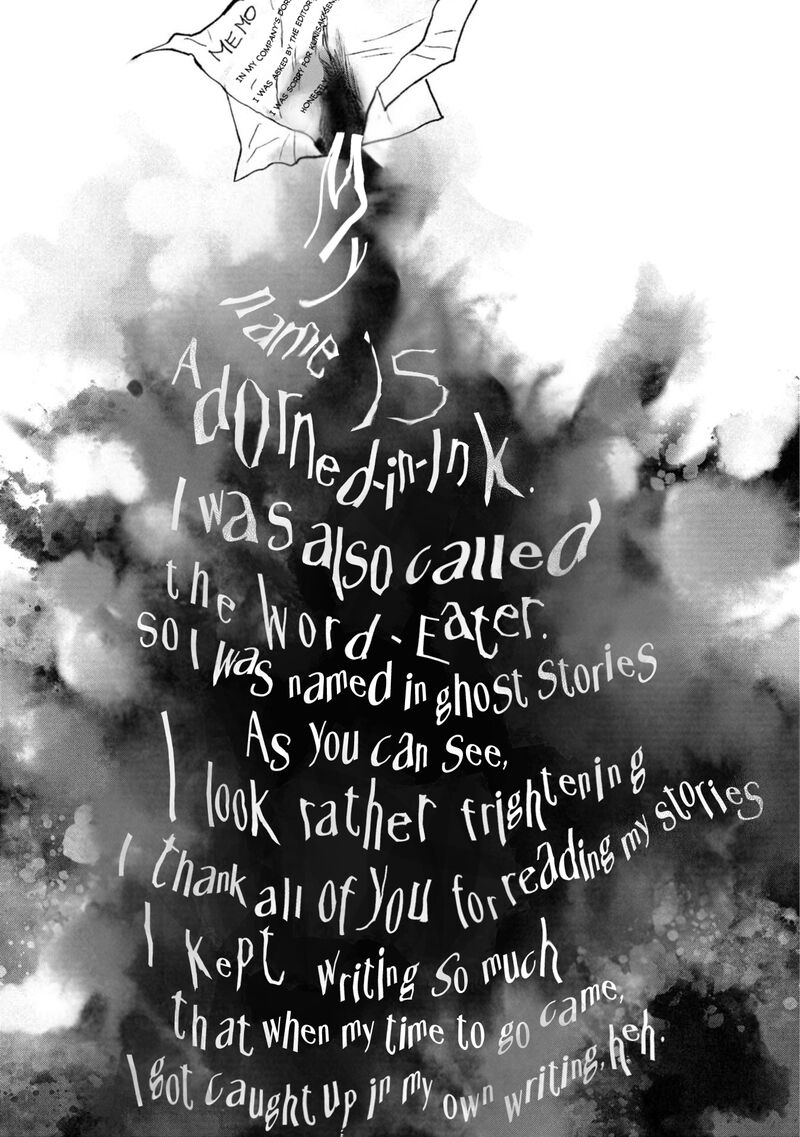 MEMO
IN MY COMPANY'S DOR
I WAS ASKED BY THE EDITOR
I WAS SORRY FOR
HONESTLY
My
name is
Adorned-in-Ink.
I was also called
the Word-Eater.
So I was named in ghost stories
As you can see,
I look rather frightening
I thank all of you for reading my stories
I kept writing so much
that when my time to go came,
I got caught up in my own writing, heh.